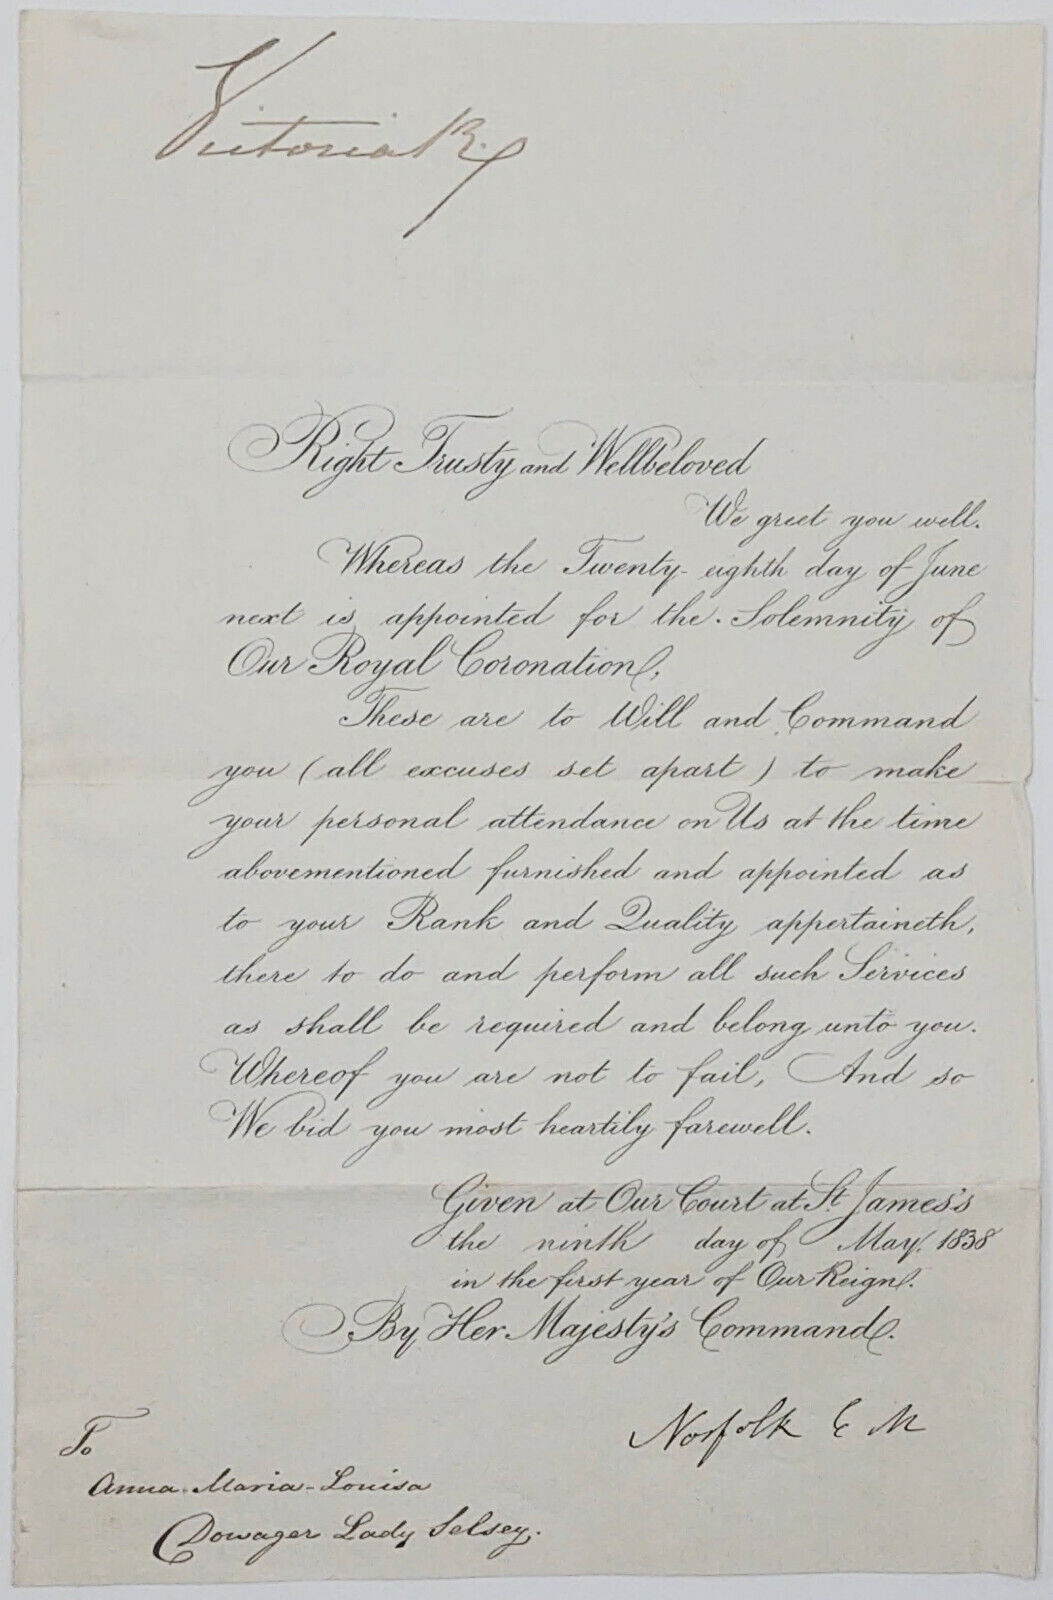 Victoria R.
Right Trusty and Wellbeloved
We greet you well.
Whereas the Twenty-eighth day of June
next is appointed for the Solemnity of
Our Royal Coronation,
These are to Will and Command
you (all excuses set apart) to make
your personal attendance on Us at the time
abovementioned furnished and appointed as
to your Rank and Quality appertaineth,
there to do and perform all such Services
as shall be required and belong unto you.
Whereof you are not to fail, And so
We bid you most heartily farewell.
Given at Our Court at St. James's
the ninth day of May. 1838
in the first year of Our Reign.
By Her Majesty's Command.
Norfolk E M
To
Anna-Maria-Louisa
Dowager Lady Selsey.